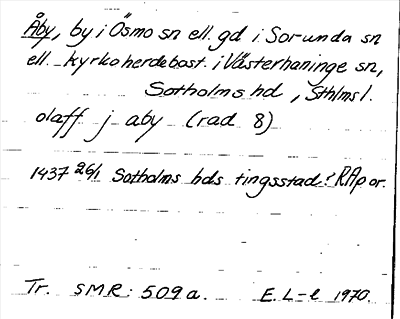 Åby, by i Ösmo sn ell. gd i Sorunda sn
ell. kyrkoherdebost. i Västerhaninge sn,
Sotholms hd, Sthlms l.
olaff j aby (rad 8)
1437 26/1 Sotholms hds tingsstad? RAp or.
Tr. SMR: 509a. E. L-l 1970.